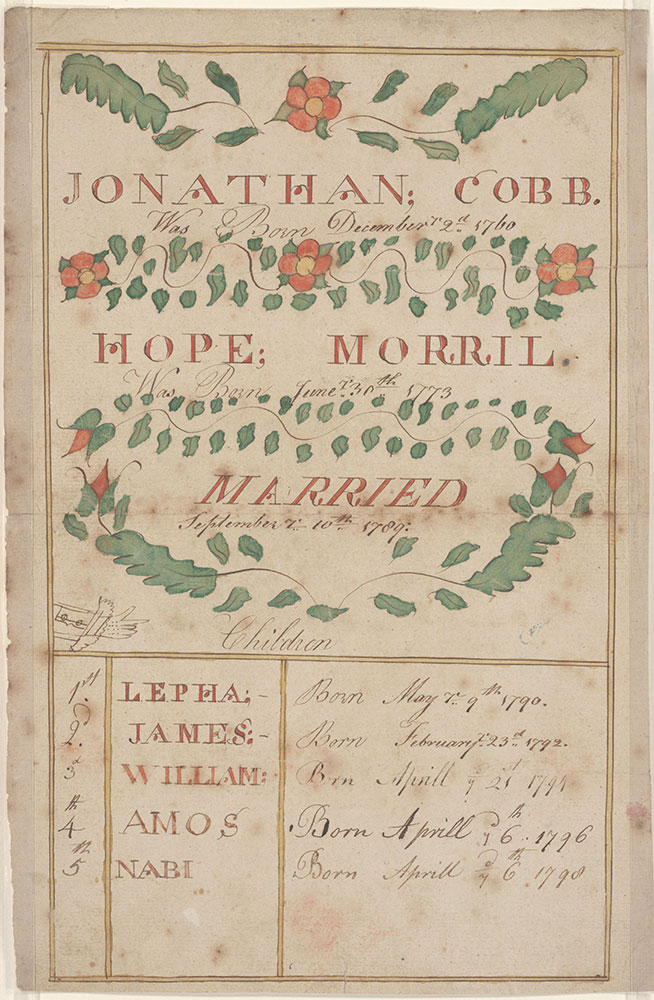 JONATHAN; COBB.
Was Born December yr 2d 1760
HOPE; MORRIL.
Was Born June yr 30th 1773
MARRIED
September yr 10th 1789.
Children
1st LEPHA;- Born May yr 9th 1790.
2d JAMES;- Born February yr 23d 1792.
3d WILLIAM: Brn Aprill 21st
4th AMOS Born Aprill yd 6th. 1796
5th NABI Born Aprill yd 6th 1798